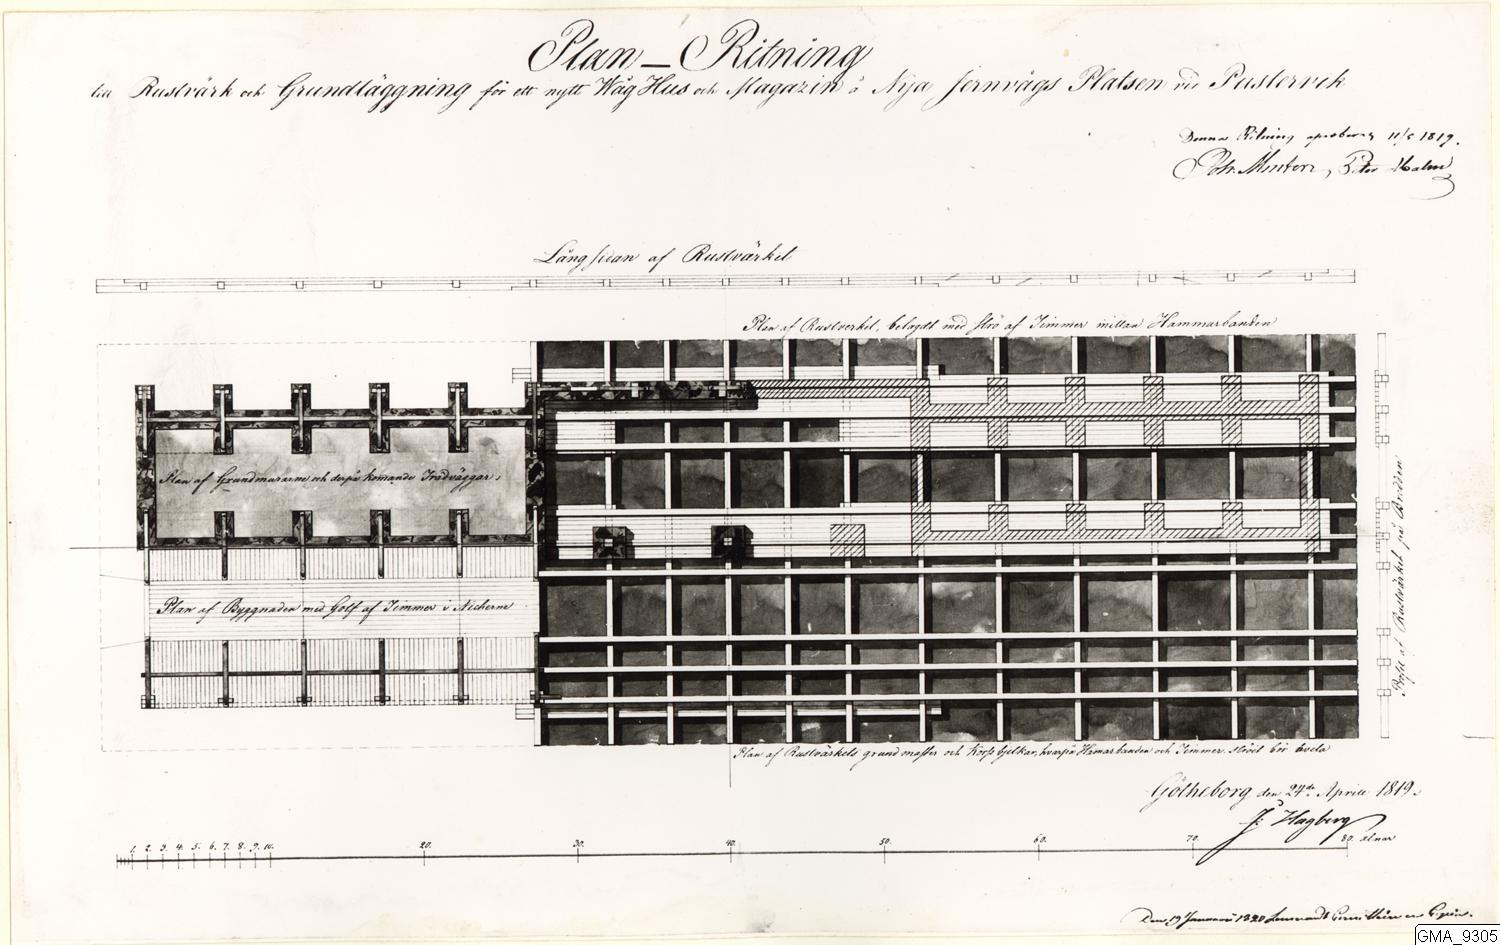 Plan – Ritning
till Rustvärk och Grundläggning för ett nytt Wåg Hus och Magazin å Nya Jernvågs Platsen vid Pustervik
Denna Ritning 11/5 1819.
Peter Malm
Lång sidan af Rustvärket
Plan af Rustverket, belagdt med strö af Timmer mellan Hammarbanden
Plan af Grundmurarne och derpå komande Trädväggar,
Plan af Byggnaden med Golf af Timmer i Nicherne
Profil af Rustvärket på Bredden
Plan af Rustvärkets grund master och Korss bjelkar, hvarpå Hamarbanden och Timmer ströet bör hvila
Götheborg den 24de Aprill 1819.
J: Hagberg
1. 2. 3. 4. 5. 6. 7. 8. 9. 10. 20. 30. 40. 50. 60. 70. 80. alnar
Den 19 Januarii 1820
GMA_9305